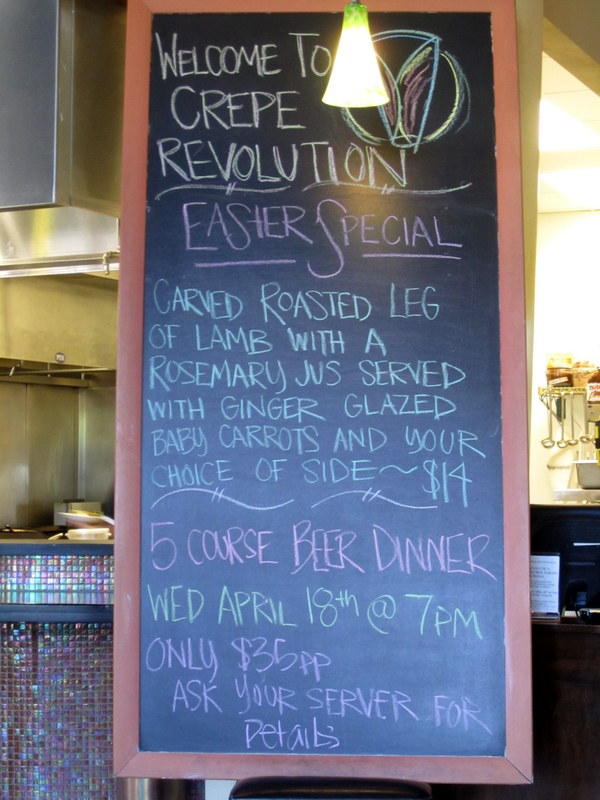 WELCOME TO
CREPE
REVOLUTION
EASTER SPECIAL
CARVED ROASTED LEG
OF LAMB WITH A
ROSEMARY JUS SERVED
WITH GINGER GLAZED
BABY CARROTS AND YOUR
CHOICE OF SIDE~$14
5 COURSE BEER DINNER
WED APRIL 18th @ 7PM
ONLY $35pp
ASK YOUR SERVER FOR
Details